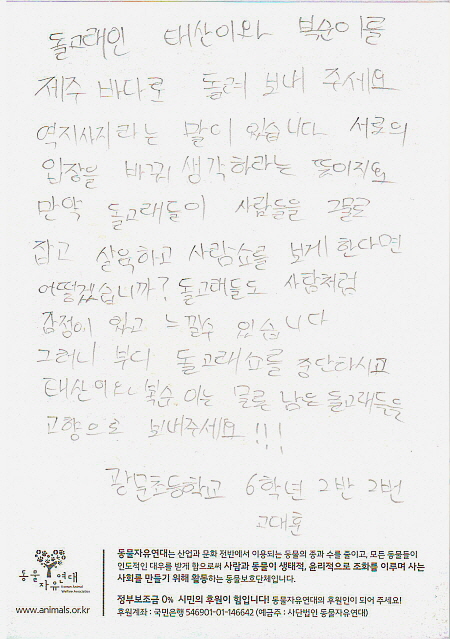 돌고래인 태산이와 복순이를
제주 바다로 돌려 보내 주세요
역지사지라는 말이 있습니다 서로의
입장을 바꿔 생각하라는 뜻이지요
만약 돌고래들이 사람들을 그물로
잡고 살육하고 사람쇼를 보게 한다면
어떻겠습니까? 돌고래들도 사람처럼
감정이 있고 느낄수 있습니다
그러니 부디 돌고래쇼를 중단하시고
태산이와 복순이는 물론 남은 돌고래들을
고향으로 보내주세요!!!
초등학교 6학년 2반 2번
고대훈
동물자유연대
Korean Animal Welfare Association
www.animals.or.kr
동물자유연대는 산업과 문화 전반에서 이용되는 동물의 종과 수를 줄이고, 모든 동물들이
인도적인 대우를 받게 함으로써 사람과 동물이 생태적, 윤리적으로 조화를 이루며 사는
사회를 만들기 위해 활동하는 동물보호단체입니다.
정부보조금 0% 시민의 후원이 힘입니다! 동물자유연대의 후원인이 되어 주세요!
후원계좌 : 국민은행 546901-01-146642 (예금주 : 사단법인 동물자유연대)